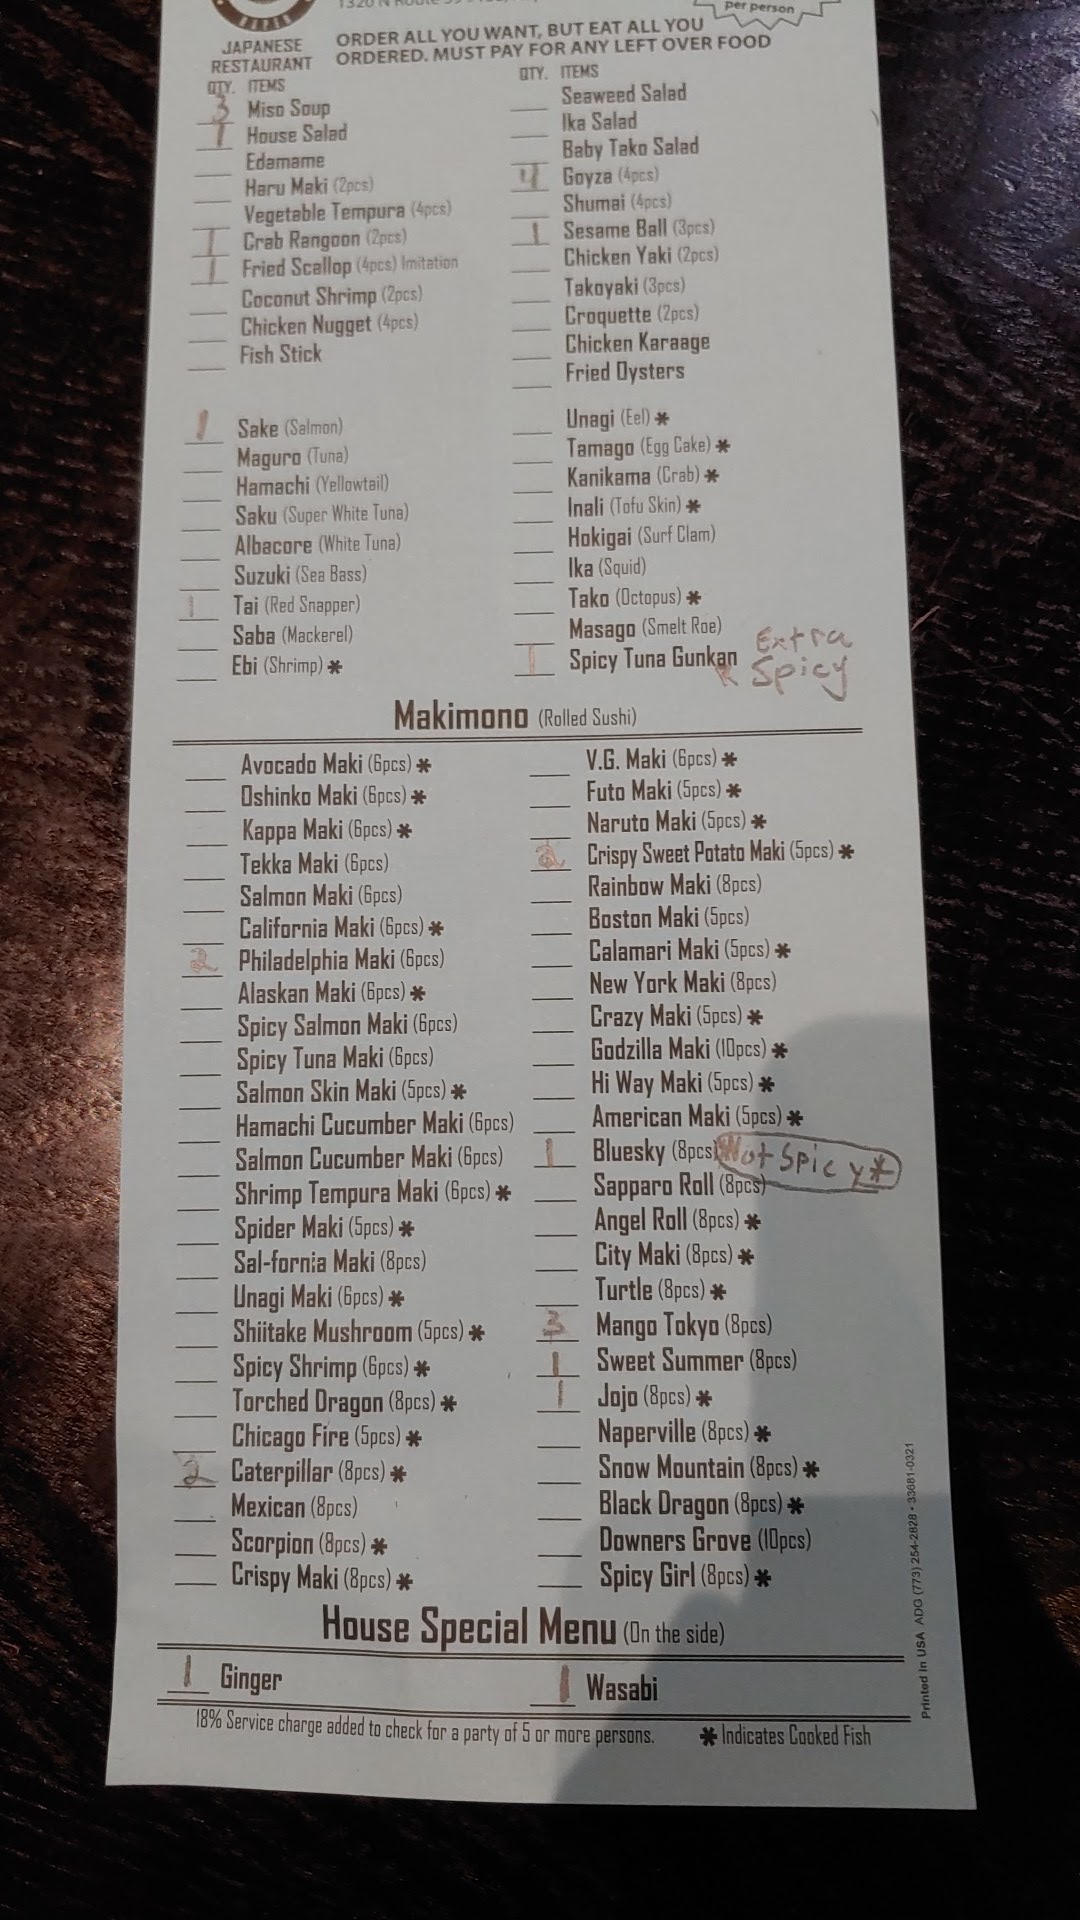 per person
JAPANESE
RESTAURANT
ORDER ALL YOU WANT, BUT EAT ALL YOU
ORDERED. MUST PAY FOR ANY LEFT OVER FOOD
QTY. ITEMS
3 Miso Soup
1 House Salad
Edamame
Haru Maki (2pcs)
Vegetable Tempura (4pcs)
1 Crab Rangoon (2pcs)
1 Fried Scallop (4pcs) Imitation
Coconut Shrimp (2pcs)
Chicken Nugget (4pcs)
Fish Stick
QTY. ITEMS
Seaweed Salad
Ika Salad
Baby Tako Salad
4 Goyza (4pcs)
Shumai (4pcs)
1 Sesame Ball (3pcs)
Chicken Yaki (2pcs)
Takoyaki (3pcs)
Croquette (2pcs)
Chicken Karaage
Fried Oysters
1 Sake (Salmon)
Maguro (Tuna)
Hamachi (Yellowtail)
Saku (Super White Tuna)
Albacore (White Tuna)
Suzuki (Sea Bass)
1 Tai (Red Snapper)
Saba (Mackerel)
Ebi (Shrimp) *
Unagi (Eel) *
Tamago (Egg Cake) *
Kanikama (Crab) *
Inali (Tofu Skin) *
Hokigai (Surf Clam)
Ika (Squid)
Tako (Octopus) *
Masago (Smelt Roe)
1 Spicy Tuna Gunkan
Extra
Spicy
Makimono (Rolled Sushi)
Avocado Maki (6pcs) *
Oshinko Maki (6pcs) *
Kappa Maki (6pcs) *
Tekka Maki (6pcs)
Salmon Maki (6pcs)
California Maki (6pcs) *
2 Philadelphia Maki (6pcs)
Alaskan Maki (6pcs) *
Spicy Salmon Maki (6pcs)
Spicy Tuna Maki (6pcs)
Salmon Skin Maki (5pcs) *
Hamachi Cucumber Maki (6pcs)
Salmon Cucumber Maki (6pcs)
Shrimp Tempura Maki (6pcs) *
Spider Maki (5pcs) *
Sal-fornia Maki (8pcs)
Unagi Maki (6pcs) *
Shiitake Mushroom (5pcs) *
Spicy Shrimp (6pcs) *
Torched Dragon (8pcs) *
Chicago Fire (5pcs) *
2 Caterpillar (8pcs) *
Mexican (8pcs)
Scorpion (8pcs) *
Crispy Maki (8pcs) *
V.G. Maki (6pcs) *
Futo Maki (5pcs) *
Naruto Maki (5pcs) *
2 Crispy Sweet Potato Maki (5pcs) *
Rainbow Maki (8pcs)
Boston Maki (5pcs)
Calamari Maki (5pcs) *
New York Maki (8pcs)
Crazy Maki (5pcs) *
Godzilla Maki (10pcs) *
Hi Way Maki (5pcs) *
American Maki (5pcs) *
1 Bluesky (8pcs) Not Spicy *
Sapparo Roll (8pcs)
Angel Roll (8pcs) *
City Maki (8pcs) *
Turtle (8pcs) *
3 Mango Tokyo (8pcs)
1 Sweet Summer (8pcs)
1 Jojo (8pcs) *
Naperville (8pcs) *
Snow Mountain (8pcs) *
Black Dragon (8pcs) *
Downers Grove (10pcs)
Spicy Girl (8pcs) *
House Special Menu (On the side)
1 Ginger
1 Wasabi
18% Service charge added to check for a party of 5 or more persons.
* Indicates Cooked Fish
Printed in USA ADG (773) 254-2828 • 33681-0321